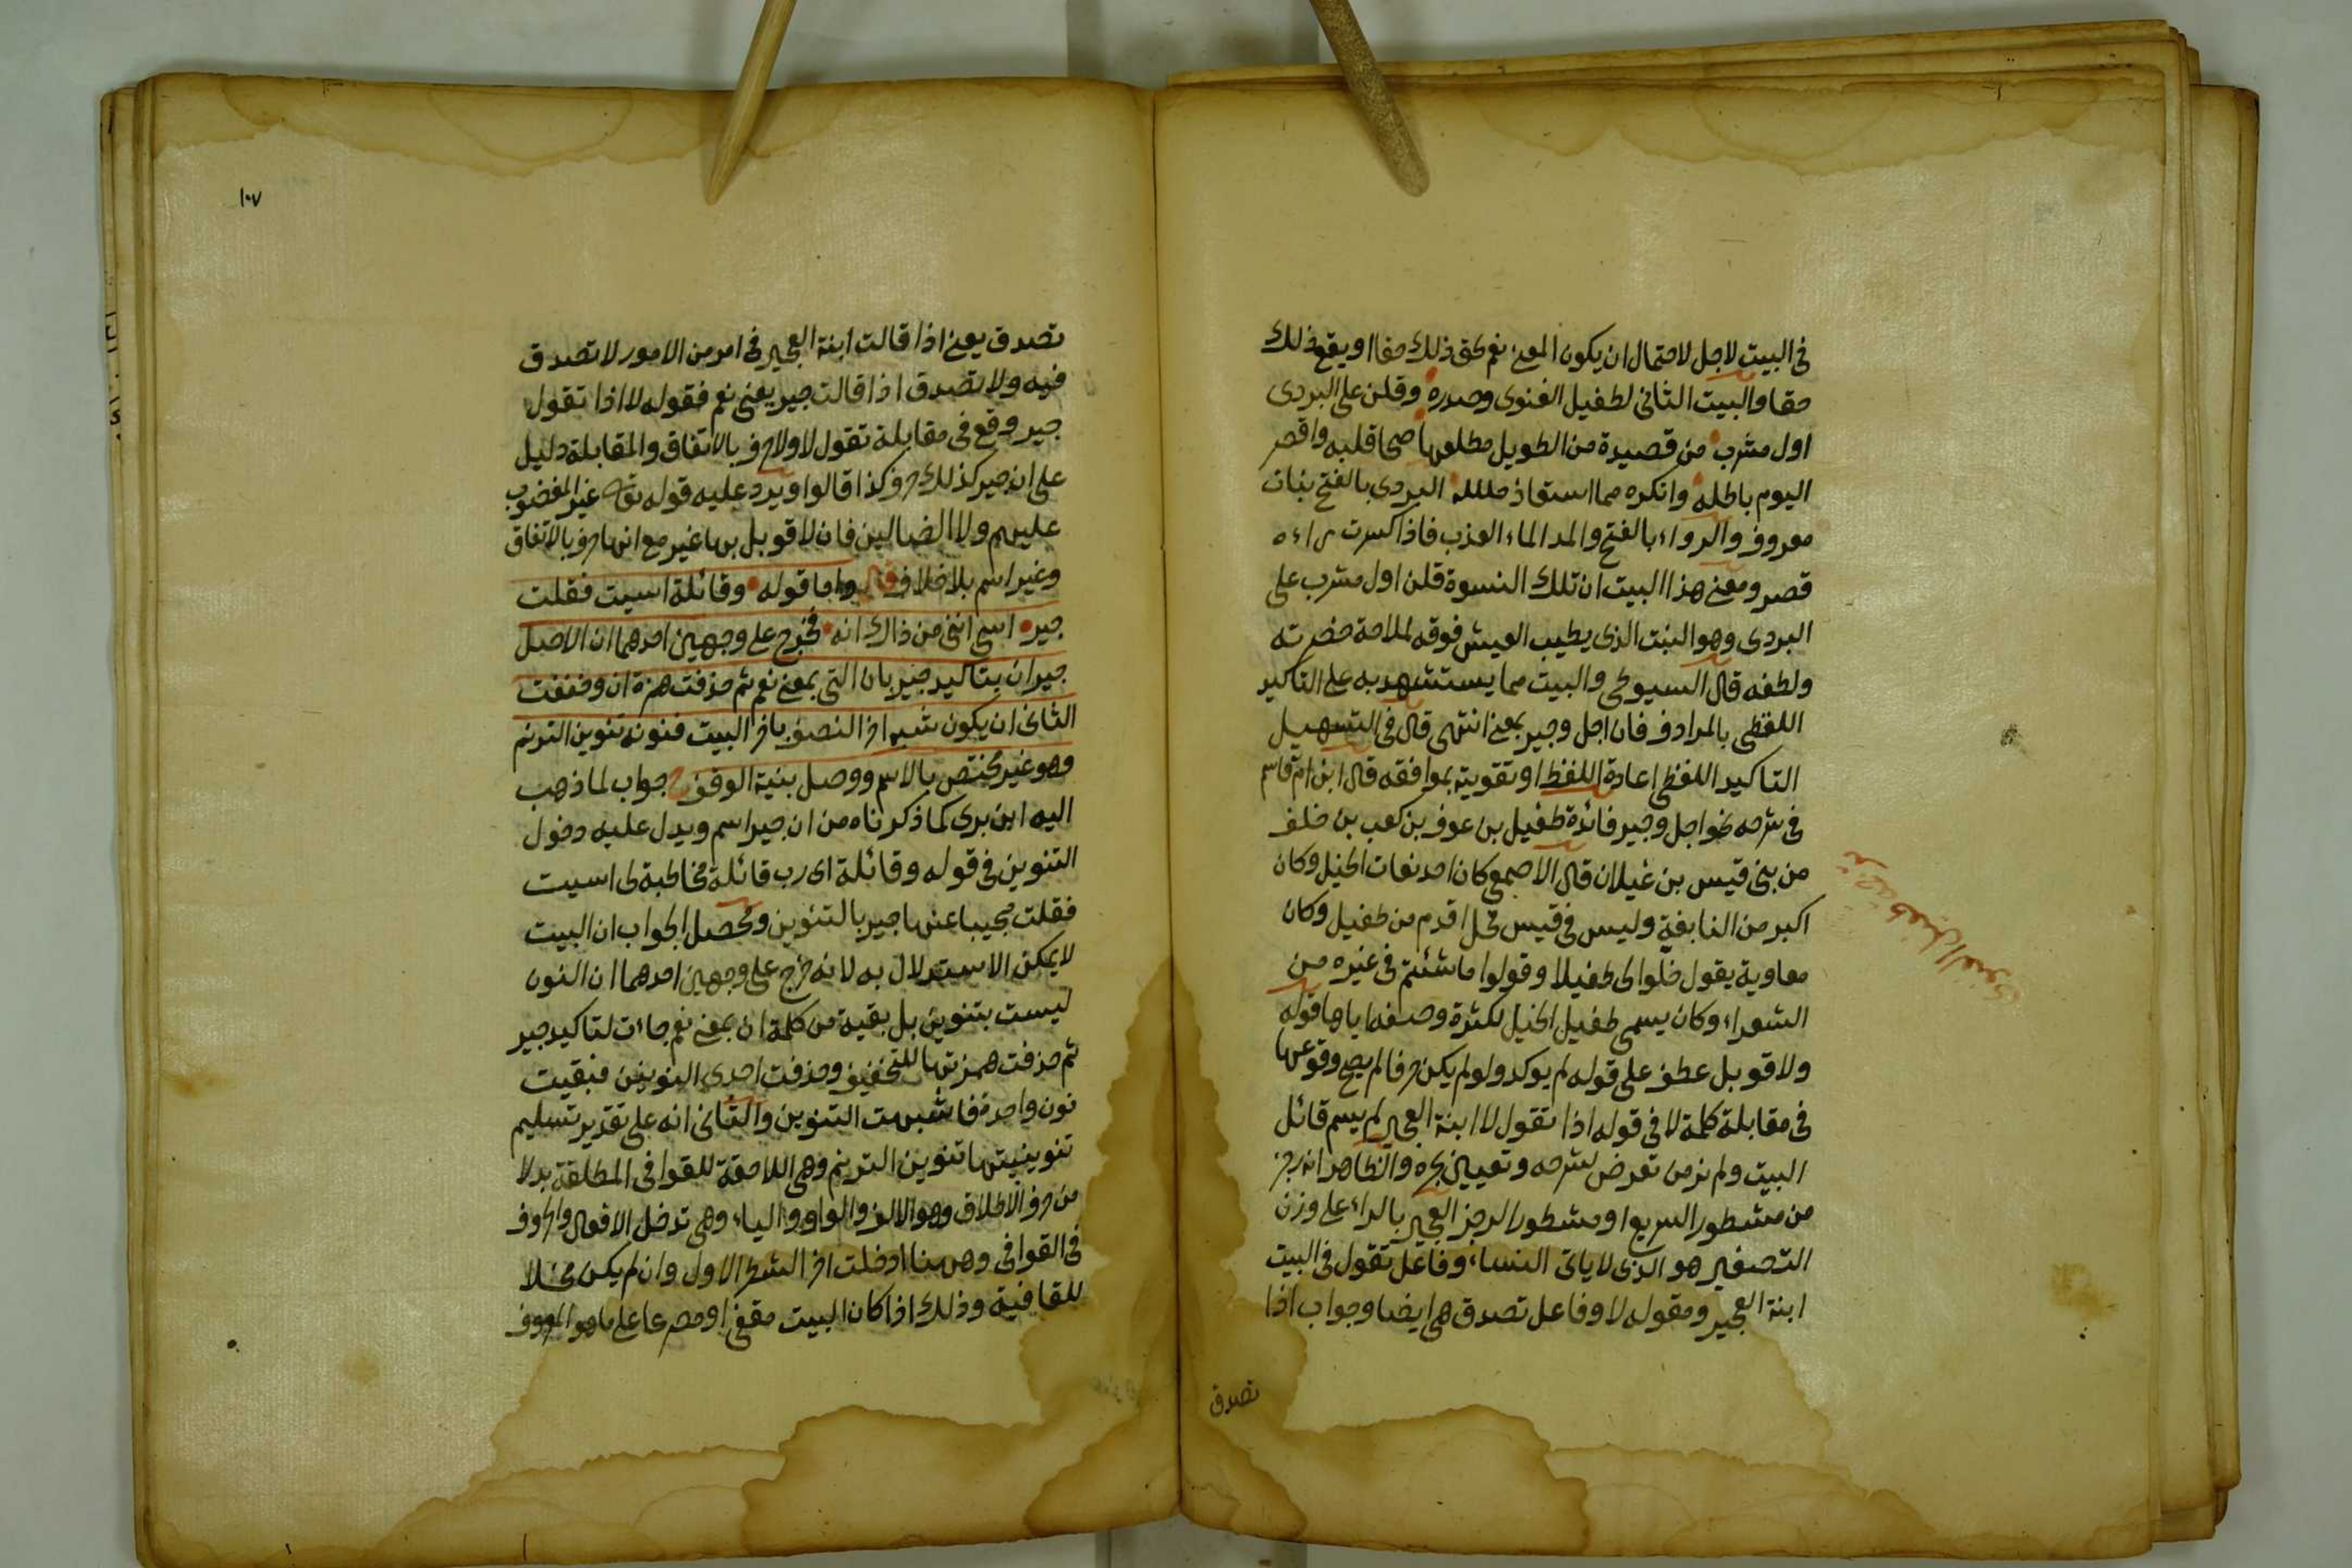 في البيت لاجل لاحتمال ان يكون المعنى نعم يحق ذلك حقا او يقع ذلك
حقا والبيت الثاني لطفيل الغنوي وصدره وقلن على البردي
اول مشرب من قصيدة من الطويل مطلعها صحا قلبه واقصر
اليوم باطله وانكره مما استعاذ حلائله البردي بالفتح نبات
معروف والرواء بالفتح والمد الماء العذب فاذا كسرت راءه
قصر ومعنى هذا البيت ان تلك النسوة قلن اول مشرب على
البردي وهو النبت الذي يطيب العيش فوقه لملاحة خضرته
ولطفه قال السيوطي والبيت مما يستشهد به على التاكيد
اللفظي بالمرادف فان اجل وجير بمعنى انتهى قال في التسهيل
التاكيد اللفظي اعادة اللفظ او تقويته بموافقه قال ابن ام قاسم
في شرحه نحو اجل وجير فائدة طفيل بن عوف بن كعب بن خلف
من بني قيس بن غيلان قال الاصمعي كان احد نعات الخيل وكان
اكبر من النابغة وليس في قيس فحل اقدم من طفيل وكان
معاوية يقول خلوا لي طفيلا وقولوا ما شئتم في غيره من
الشعراء وكان يسمى طفيل الخيل لكثرة وصفه اياها قوله
ولا قوبل عطف على قوله لم يوكد ولو لم يكن حرفا لم يصح وقوعها
في مقابلة كلمة لا في قوله اذا تقول لا ابنة العجير لم يسم قائل
البيت ولم نر من تعرض لشرحه وتعيين بحره والظاهر انه رجز
من مشطور السريع او مشطور الرجز العجير بالراء على وزن
التصغير هو الذي لا ياتي النساء وفاعل تقول في البيت
ابنة العجير ومقوله لا وفاعل تصدق هي ايضا وجواب اذا
تصدق
ترجمة طفيل الغنوي
١٠٧
تصدق يعني اذا قالت ابنة العجير في امر من الامور لا تصدق
فيه ولا تصدق اذا قالت جير يعني نعم فقوله لا اذا تقول
جير وقع في مقابلة تقول لا ولا حرف بالاتفاق والمقابلة دليل
على ان جير كذلك حرف كذا قالوا ويرد عليه قوله تعالى غير المغضوب
عليهم ولا الضالين فان لا قوبل بها غير مع انها حرف بالاتفاق
وغير اسم بلا خلاف قال واما قوله وقائلة اسيت فقلت
جير اسي انني من ذاك انه فخرج على وجهين احدهما ان الاصل
جير ان بتاكيد جير بان التي بمعنى نعم ثم حذفت همزة ان وخففت
الثاني ان يكون شبه اخر النصف باخر البيت فنونه تنوين الترنم
وهو غير مختص بالاسم ووصل بنية الوقف جواب لما ذهب
اليه ابن بري كما ذكرناه من ان جير اسم ويدل عليه دخول
التنوين في قوله وقائلة اي رب قائلة مخاطبة لي اسيت
فقلت مجيبا عنها جير بالتنوين ومحصل الجواب ان البيت
لا يمكن الاستدلال به لانه خرج على وجهين احدهما ان النون
ليست بتنوين بل بقية من كلمة ان بمعنى نعم جاءت لتاكيد جير
ثم حذفت همزتها للتخفيف وحذفت احدى النونين فبقيت
نون واحدة فاشبهت التنوين والثاني انه على تقدير تسليم
تنوينيتها تنوين الترنم وهي اللاحقة للقوافي المطلقة بدلا
من حرف الاطلاق وهو الالف والواو والياء وهي تدخل الافعال والحروف
في القوافي وههنا ادخلت اخر الشطر الاول وان لم يكن محلا
للقافية وذلك اذا كان البيت مقفى او مصرعا على ما هو المعروف